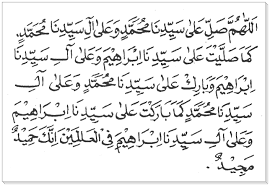 اَللّٰهُمَّ صَلِّ عَلٰى سَيِّدِنَا مُحَمَّدٍ وَعَلٰى اٰلِ سَيِّدِنَا مُحَمَّدٍ.
كَمَا صَلَّيْتَ عَلٰى سَيِّدِنَا اِبْرَاهِيْمَ وَعَلٰى اٰلِ سَيِّدِنَا
اِبْرَاهِيْمَ وَبَارِكْ عَلٰى سَيِّدِنَا مُحَمَّدٍ وَعَلٰى اٰلِ
سَيِّدِنَا مُحَمَّدٍ كَمَا بَارَكْتَ عَلٰى سَيِّدِنَا اِبْرَاهِيْمَ
وَعَلٰى اٰلِ سَيِّدِنَا اِبْرَاهِيْمَ فِى الْعَالَمِيْنَ اِنَّكَ حَمِيْدٌ
مَجِيْدٌ.